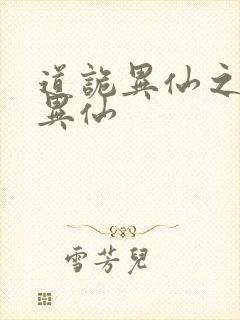 道詭異仙之
異仙
雪芳兒